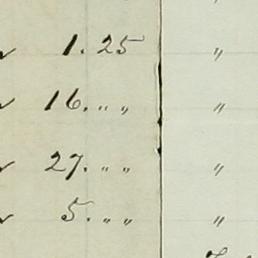 1.25 "
16. " " "
27. " " "
5. " " "